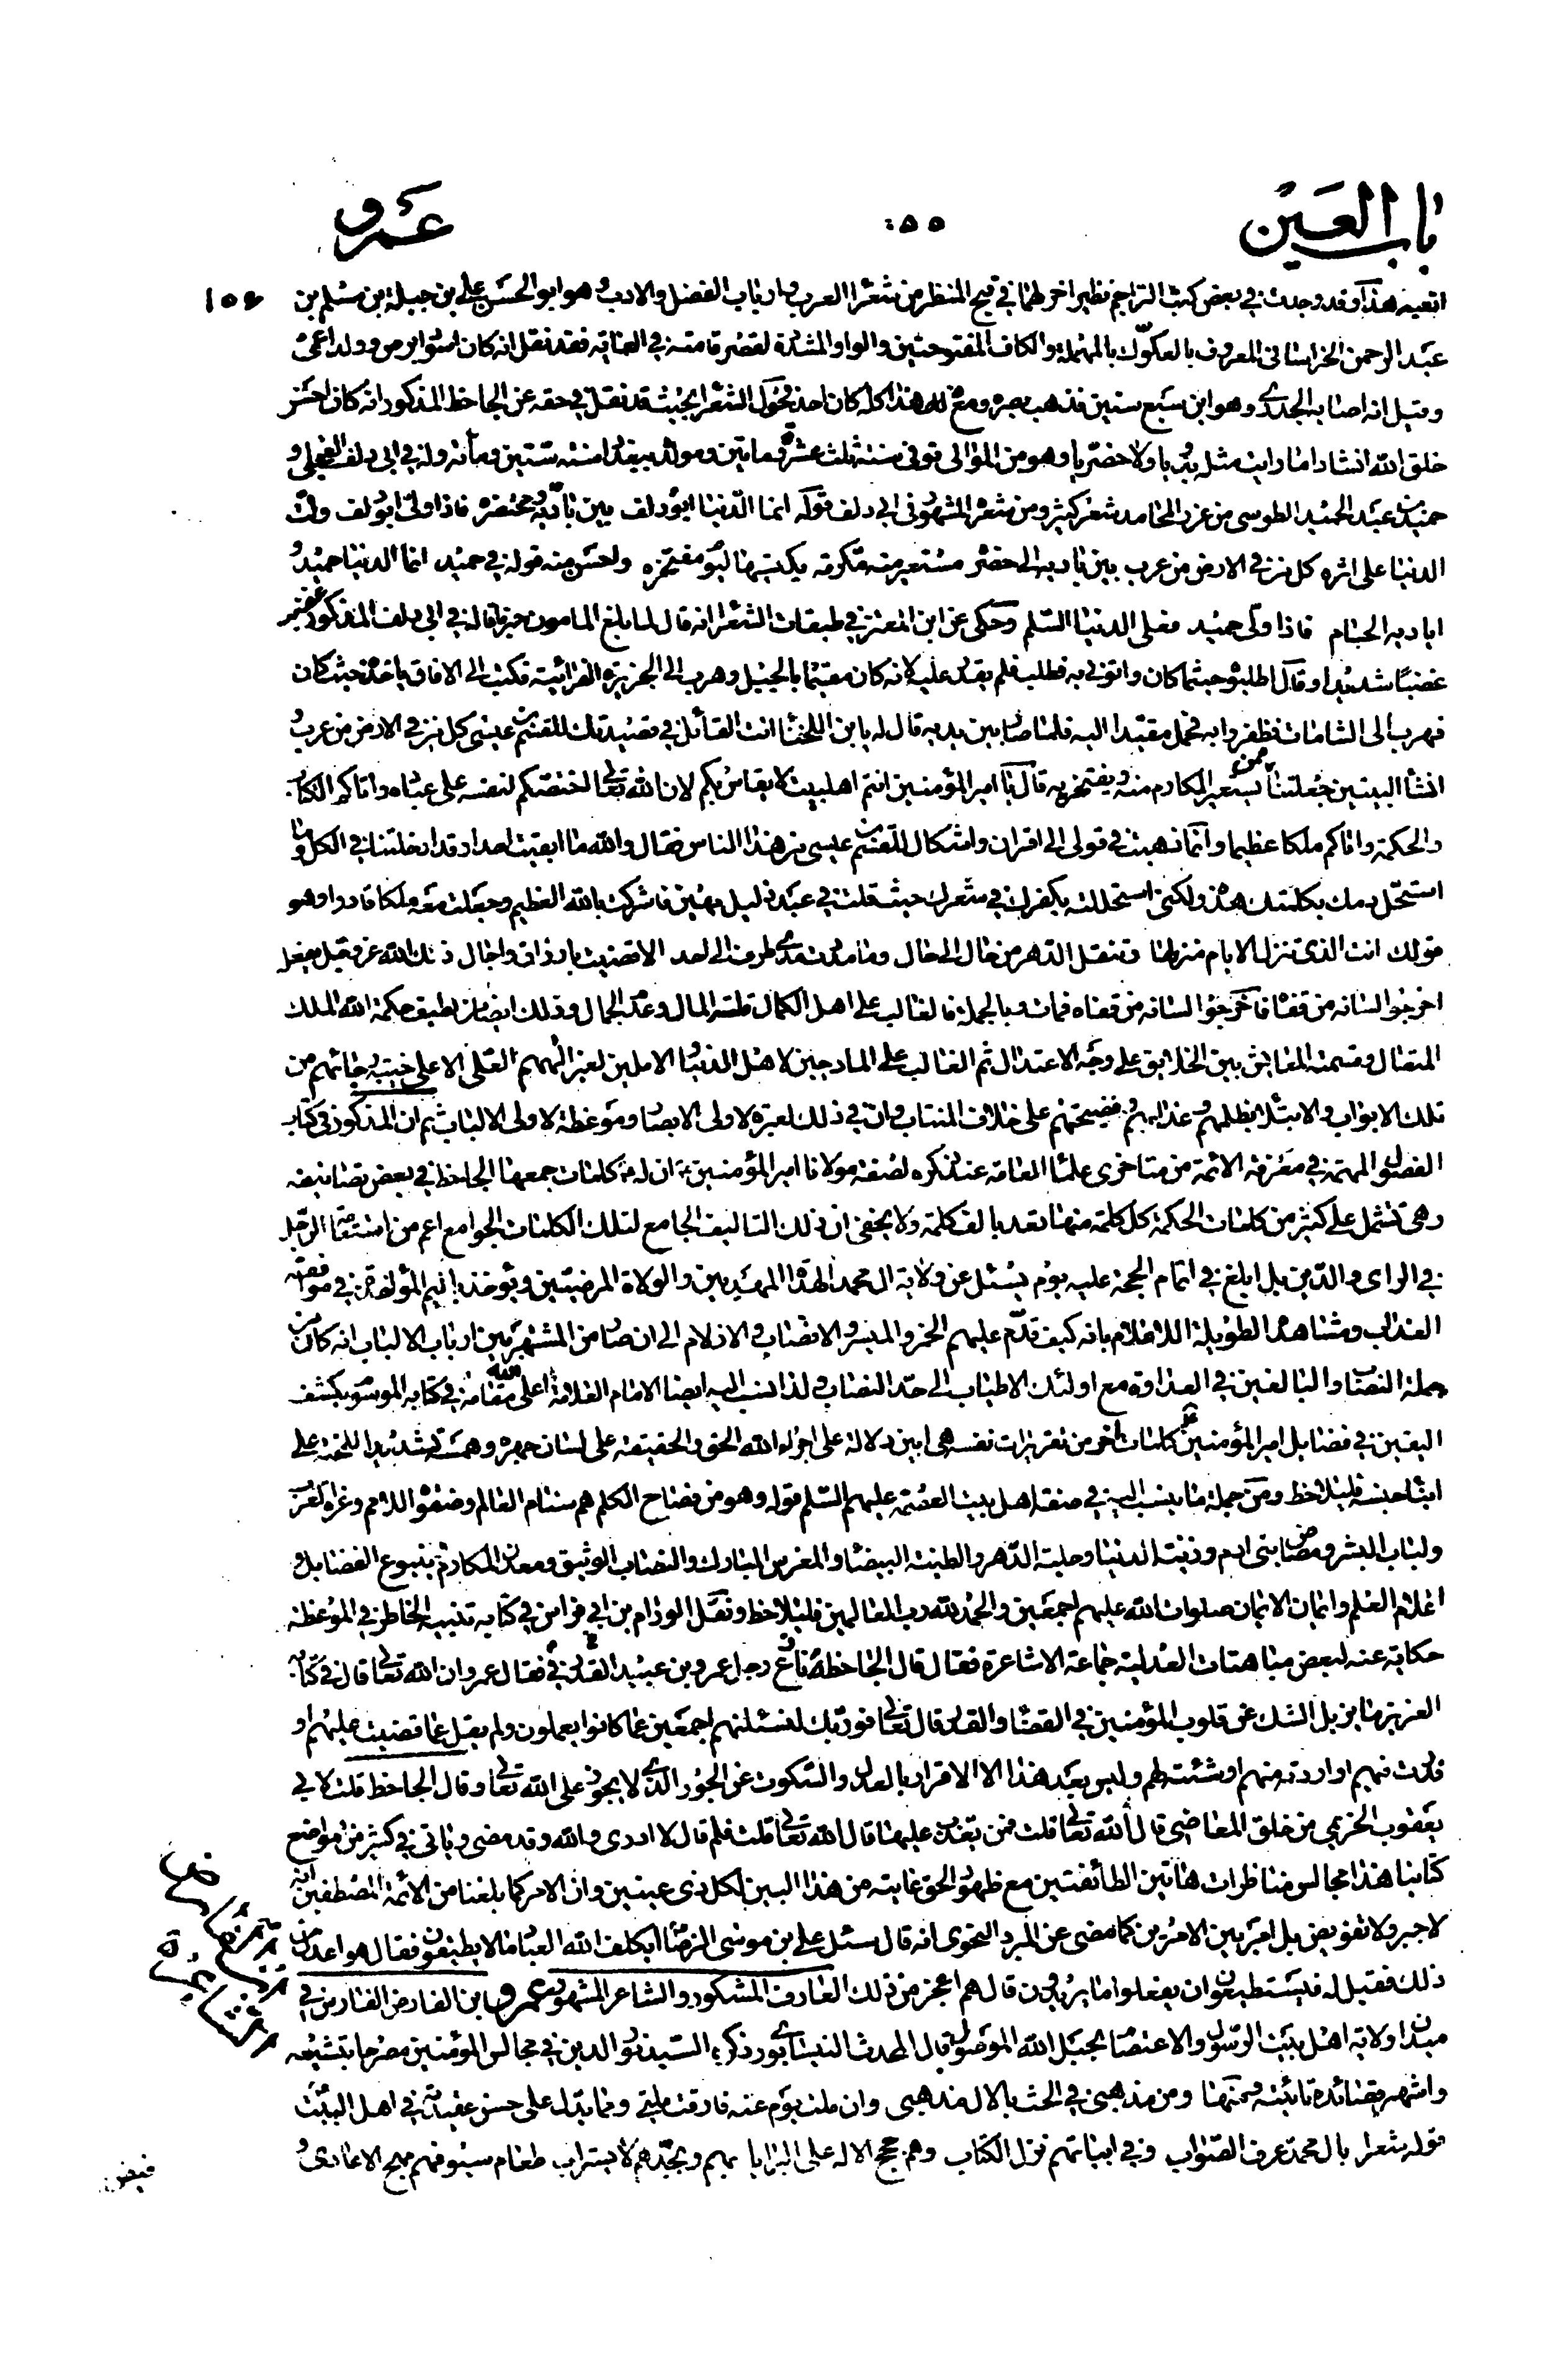 باب العين
٥٥٠
عمرو
انعيه هذا وقد وجدت في بعض كتب التراجم نظيرا اخر لهما في قبح المنظر من شعراء العرب وارباب الفضل والادب وهو ابو الحسن علي بن جبلة بن مسلم بن
١٥٤
عبد الرحمن الخراساني المعروف بالعكوّك بالمهملة والكاف المفتوحتين والواو المشددة لقصر قامته في الغاية فقد نقل انه كان اسود ابرص وولد اعمى
وقيل انه اصابه الجدري وهو ابن سبع سنين فذهب بصره ومع هذا كله كان احد فحول الشعراء بحيث قد نقل في حقه عن الجاحظ المذكور انه كان احسن
خلق الله انشادا ما رايت مثله بدويا ولا حضريا وهو من الموالى توفى سنة ثلث عشرة ومأتين ومولده ببغداد سنة ستين ومأة وله في ابى دلف العجلى و
حميد بن عبد الحميد الطوسى من غرر المحامد شعر كثير ومن شعره المشهور في ابى دلف قوله انما الدنيا ابو دلف بين باديه ومحتضره فاذا ولّى ابو دلف ولّت
الدنيا على اثره كل من في الارض من عرب بين باديه الى حضره مستعير منه مكرمة يكتسيها يوم مفتخره واحسن منه قوله في حميد انما الدنيا حميد و
اياديه الجسام فاذا ولى حميد فعلى الدنيا السلام وحكى عن ابن المعتز في طبقات الشعراء انه قال لما بلغ المامون خبر ما قاله في ابى دلف المذكور غضب
غضبًا شديدا وقال اطلبوه حيثما كان واتونى به فطلب فلم يقدر عليه لانه كان مقيما بالجبل وهرب الى الجزيرة الفراتية فكتب الى الافاق باخذه حيث كان
فهرب الى الشامات فظفروا به فحمل مقيّدا اليه فلما صار بين يديه قال له يابن اللخناء انت القائل في قصيدتك للقسم بن عيسى كل من في الارض من عرب و
انشأ البيتين جعلتنا ممن يستعير المكارم منه ويفتخر به قال يا امير المؤمنين انتم اهلبيت لا يقاس بكم لان الله تعالى اختصكم لنفسه على عباده واتاكم الكتاب
والحكمة واتاكم ملكا عظيما وانما ذهبت في قولى الى اقران واشكال للقسم بن عيسى من هذا الناس فقال والله ما ابقيت احدا وقد ادخلتنا في الكل وما
استحل دمك بكلمتك هذه ولكنى استحللته بكفرك في شعرك حيث قلت في عبد ذليل مهين فاشركت بالله العظيم وجعلت معه ملكا قادرا وهو
قولك انت الذى تنزل الايام منزلها وتنقل الدهر من حال الى حال وما مددت مدى طرف الى احد الا قضيت بارزاق واجال ذلك الله عز وجل يفعله
اخرجوا لسانه من قفاه فاخرجوا لسانه من قفاه فمات وبالجملة فالغالب على اهل الكمال قلة المال وعدم الجمال وذلك ايضا من لطيف حكمة الله الملك
المتعال وقسمته المعايش بين الخلايق على وجه الاعتدال ثم الغالب على المادحين لاهل الدنيا الاملين لغير الههم العلى الاعلى خيبة رجائهم من
تلك الابواب والابتلاء بظلمهم وعذابهم وفضيحتهم على خلاف المنتاب وان في ذلك لعبرة لاولى الابصار وموعظة لاولى الالباب ثم ان المذكور في كتاب
الفصول المهمة في معرفة الائمة من متاخرى علماء العامة عند ذكره لصفة مولانا امير المؤمنين ع ان له كلمات جمعها الجاحظ في بعض تصانيفه
وهى تشتمل على كثير من كلمات الحكمة كل كلمة منها تعد بالف كلمة ولا يخفى ان ذلك التاليف الجامع لتلك الكلمات الجوامع اعم من استقامة الرجل
في الراى والدين بل ابلغ في اتمام الحجة عليه يوم يسئل عن ولاية ال محمد الهداة المهديين والولاة المرضيين ويؤخذ باليم المؤاخذة في مواقف
العذاب ومشاهده الطويلة الاظلام بانه كيف قدّم عليهم الخمر والميسر والانصاب والازلام الى ان صار من المشتهرين بين ارباب الالباب انه كان من
جملة النصاب والبالغين في العداوة مع اولئك الاطياب الى حد النصاب ولذا نسب اليه ايضا الامام العلامة اعلى الله مقامه في كتابه الموسوم بكشف
اليقين في فضايل امير المؤمنين ع كلمات اخر من تقريرات نفسه هى ابين دلالة على اجراء الله الحق والحقيقة على لسان جهره وهمسه تشديدا للحجة على
ابناء جنسه فليلاحظ ومن جملة ما ينسب اليه في صفة اهل بيت العصمة عليهم السلام قوله وهو من فصاح الكلم هم سنام العالم وصفوة الامم وغرر العرب
ولباب البشر ومصاص بنى ادم وزينة الدنيا وحلية الدهر والطينة البيضاء والمغرس المبارك والنصاب الوثيق ومعدن المكارم وينبوع الفضايل و
اعلام العلم وايمان الايمان صلوات الله عليهم اجمعين والحمد لله رب العالمين فليلاحظ ونقل الورام بن ابى فراس في كتابه تنبيه الخاطر في الموعظة
حكاية عنه لبعض مباهتات العدلية جماعة الاشاعرة فقال قال الجاحظ نازع رجل عمرو بن عبيد في القدر فقال عمرو ان الله تعالى قال في كتابه
العزيز ما يزيل الشك عن قلوب المؤمنين في القضاء والقدر قال تعالى فوربك لنسئلنهم اجمعين عما كانوا يعملون ولم يقل عما قضيت عليهم او
قدرت فيهم او اردته منهم او شئت لهم وليس بعد هذا الا الاقرار بالعدل والسكوت عن الجور الذى لا يجوز على الله تعالى وقال الجاحظ قلت لابى
يعقوب الخريمى من خلق المعاصى قال الله تعالى قلت فمن يعذب عليها قال الله تعالى قلت فلم قال لا ادرى والله وقد مضى وياتى في كثير من مواضع
كتابنا هذا مجالس مناظرات هاتين الطائفتين مع ظهور الحق غايته من هذا البين لكل ذى عينين وان الامر كما بلغنا من الائمة المصطفين انه
لا جبر ولا تفويض بل امر بين الامرين كما مضى عن المبرد النحوى انه قال سئل على بن موسى الرضا ايكلف الله العباد ما لا يطيقون فقال هو اعدل من
ذلك فقيل له فيستطيعون ان يفعلوا ما يريدون قال هم اعجز من ذلك العارف المشكور والشاعر المشهور عمرو ابن الفارض الفارس في
ميدان ولاية اهل بيت الرسول والاعتصام بحبل الله الموصول قال المحدث النيسابورى ذكره السيد نور الدين في مجالس المؤمنين مصرحا بتشيعه
واشتهر بقصائده تائيته ومنها ومن مذهبى في الحب بالال مذهبى وان ملت يوم عنه فارقت ملتى ومما يدل على حسن عقيدته في اهل البيت
قوله شعرا بال محمد عرف الصواب وفي ابياتهم نزل الكتاب وهم حجج الاله على البرايا بهم وبجدهم لا يستراب طعام سيوفهم مهج الاعادى و